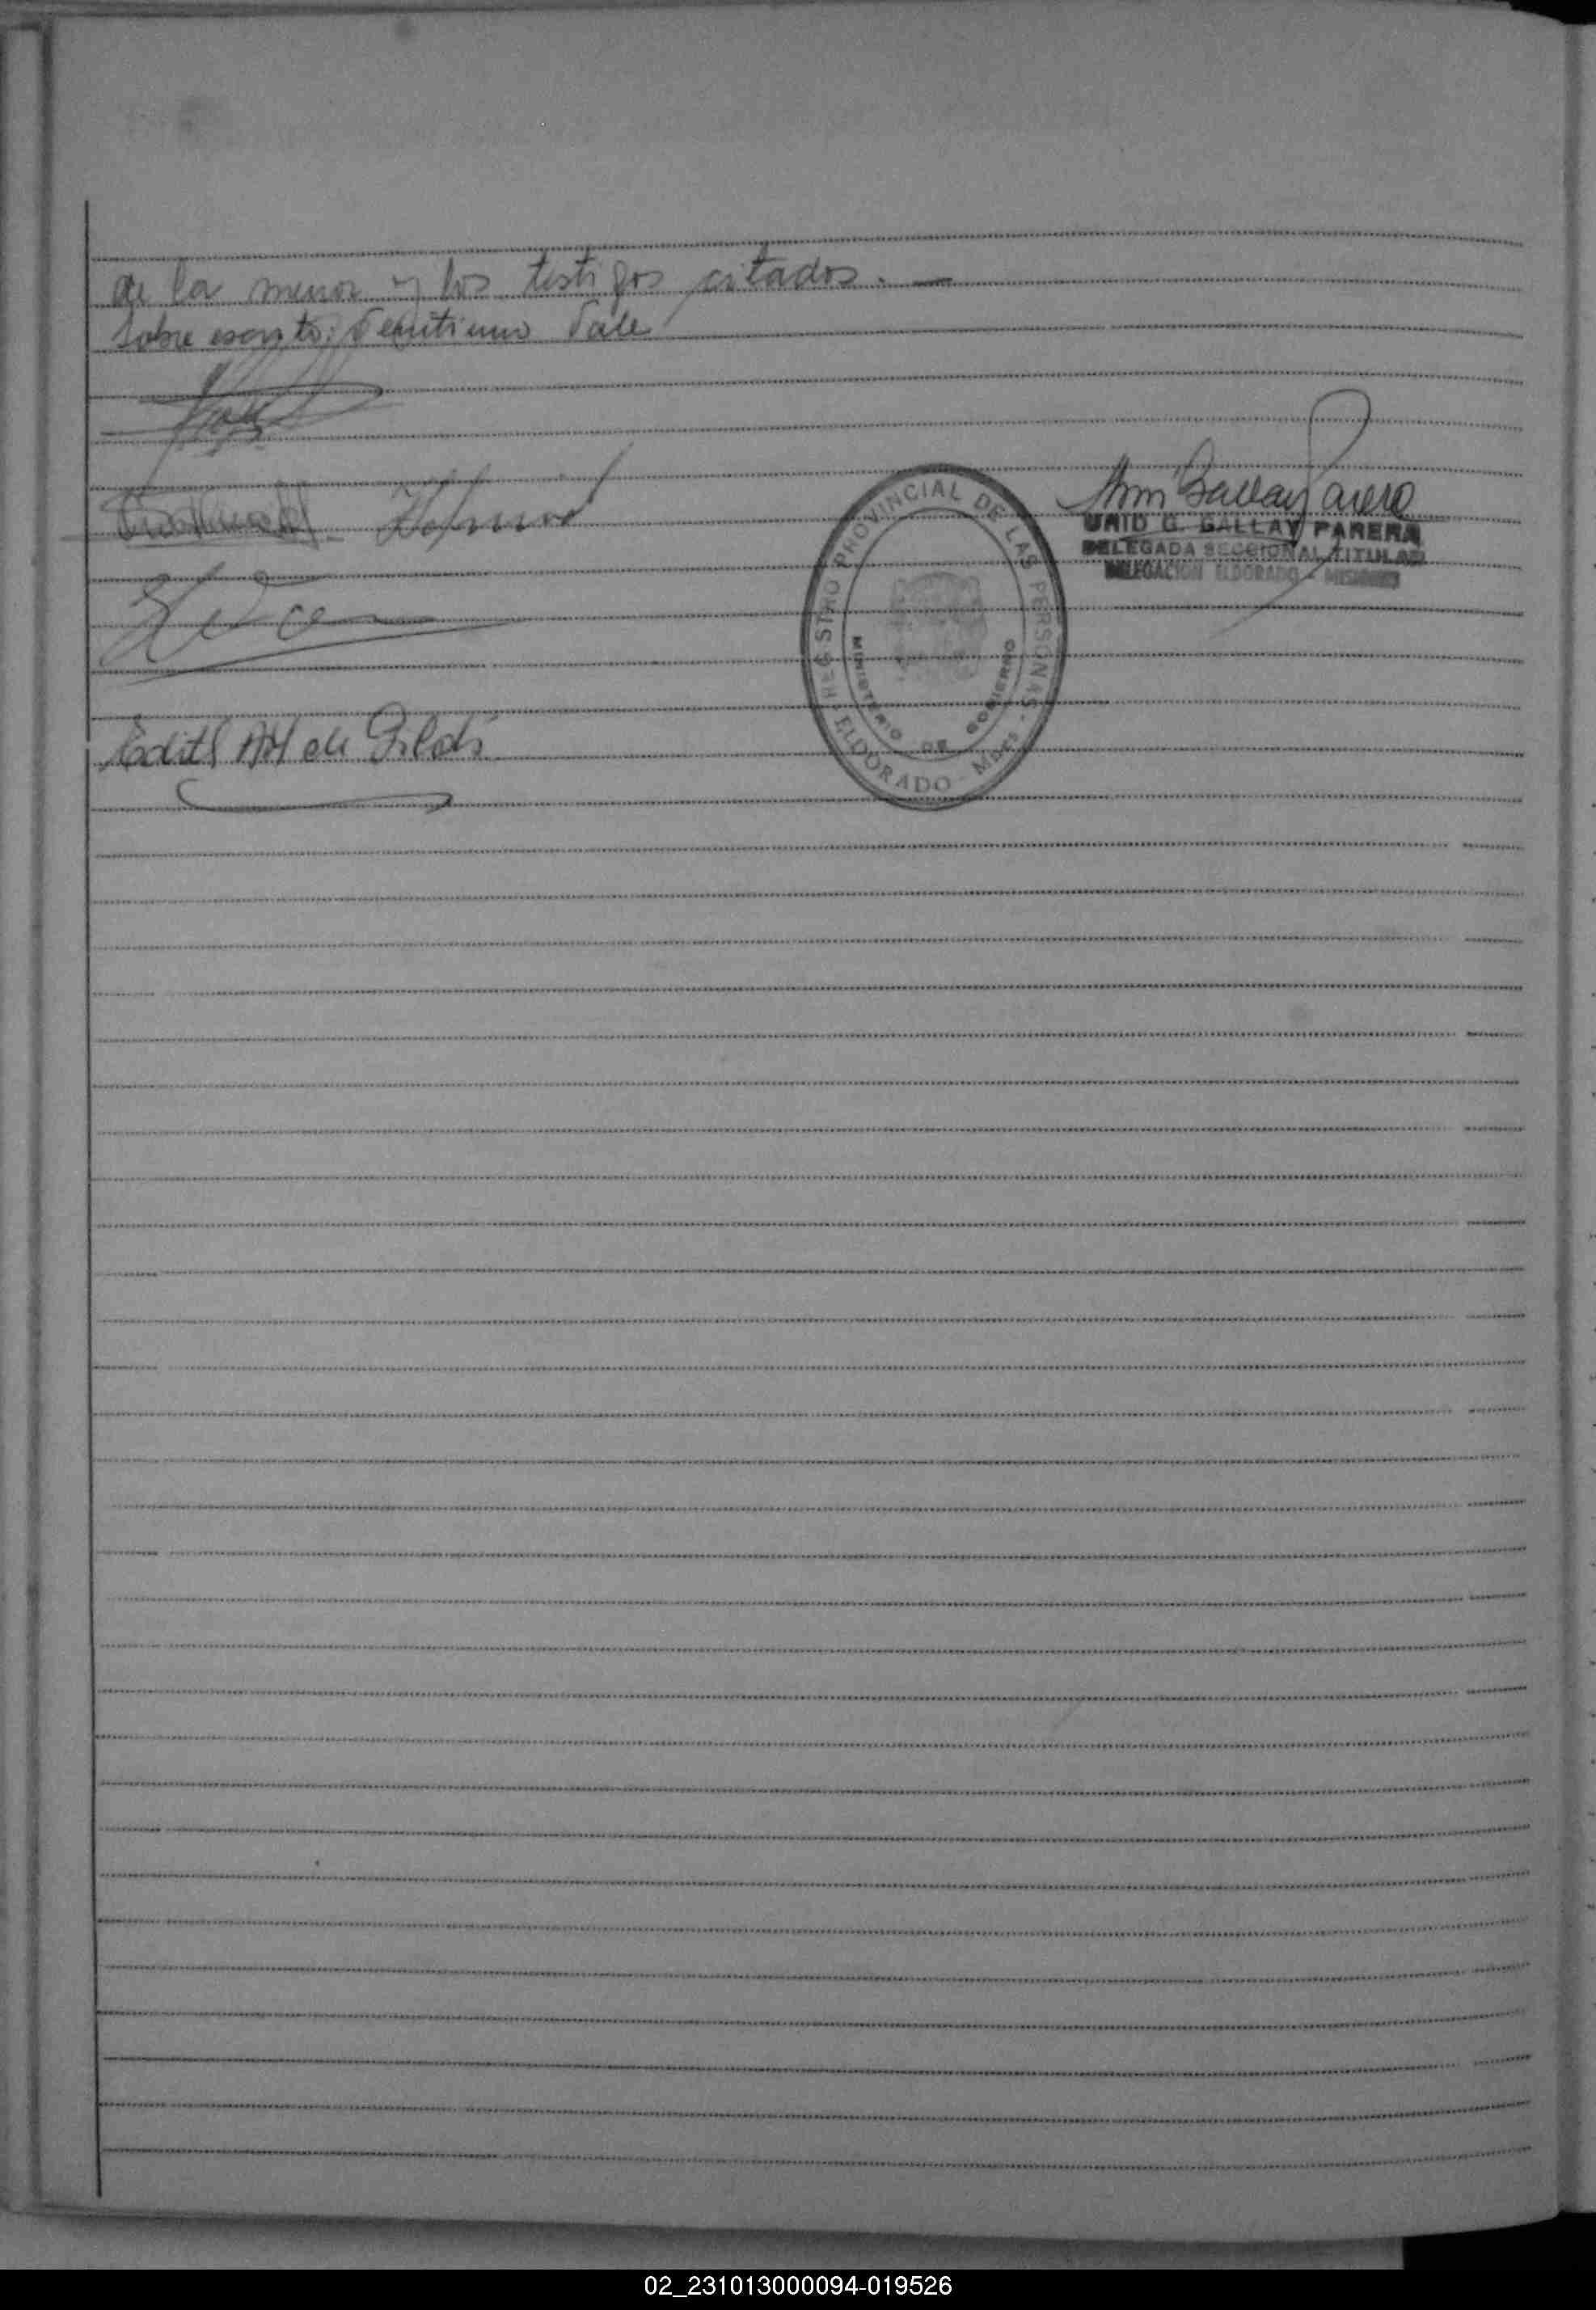 de la menor y los testigos citados. —
Sobre escrito: Veintiuno Vale
Edith de
REGISTRO PROVINCIAL DE LAS PERSONAS - ELDORADO - Mnes.
MINISTERIO DE GOBIERNO
Gallay Parera
G. GALLAY PARERA
DELEGADA SECCIONAL TITULAR
DELEGACION ELDORADO - MISIONES
02_231013000094-019526